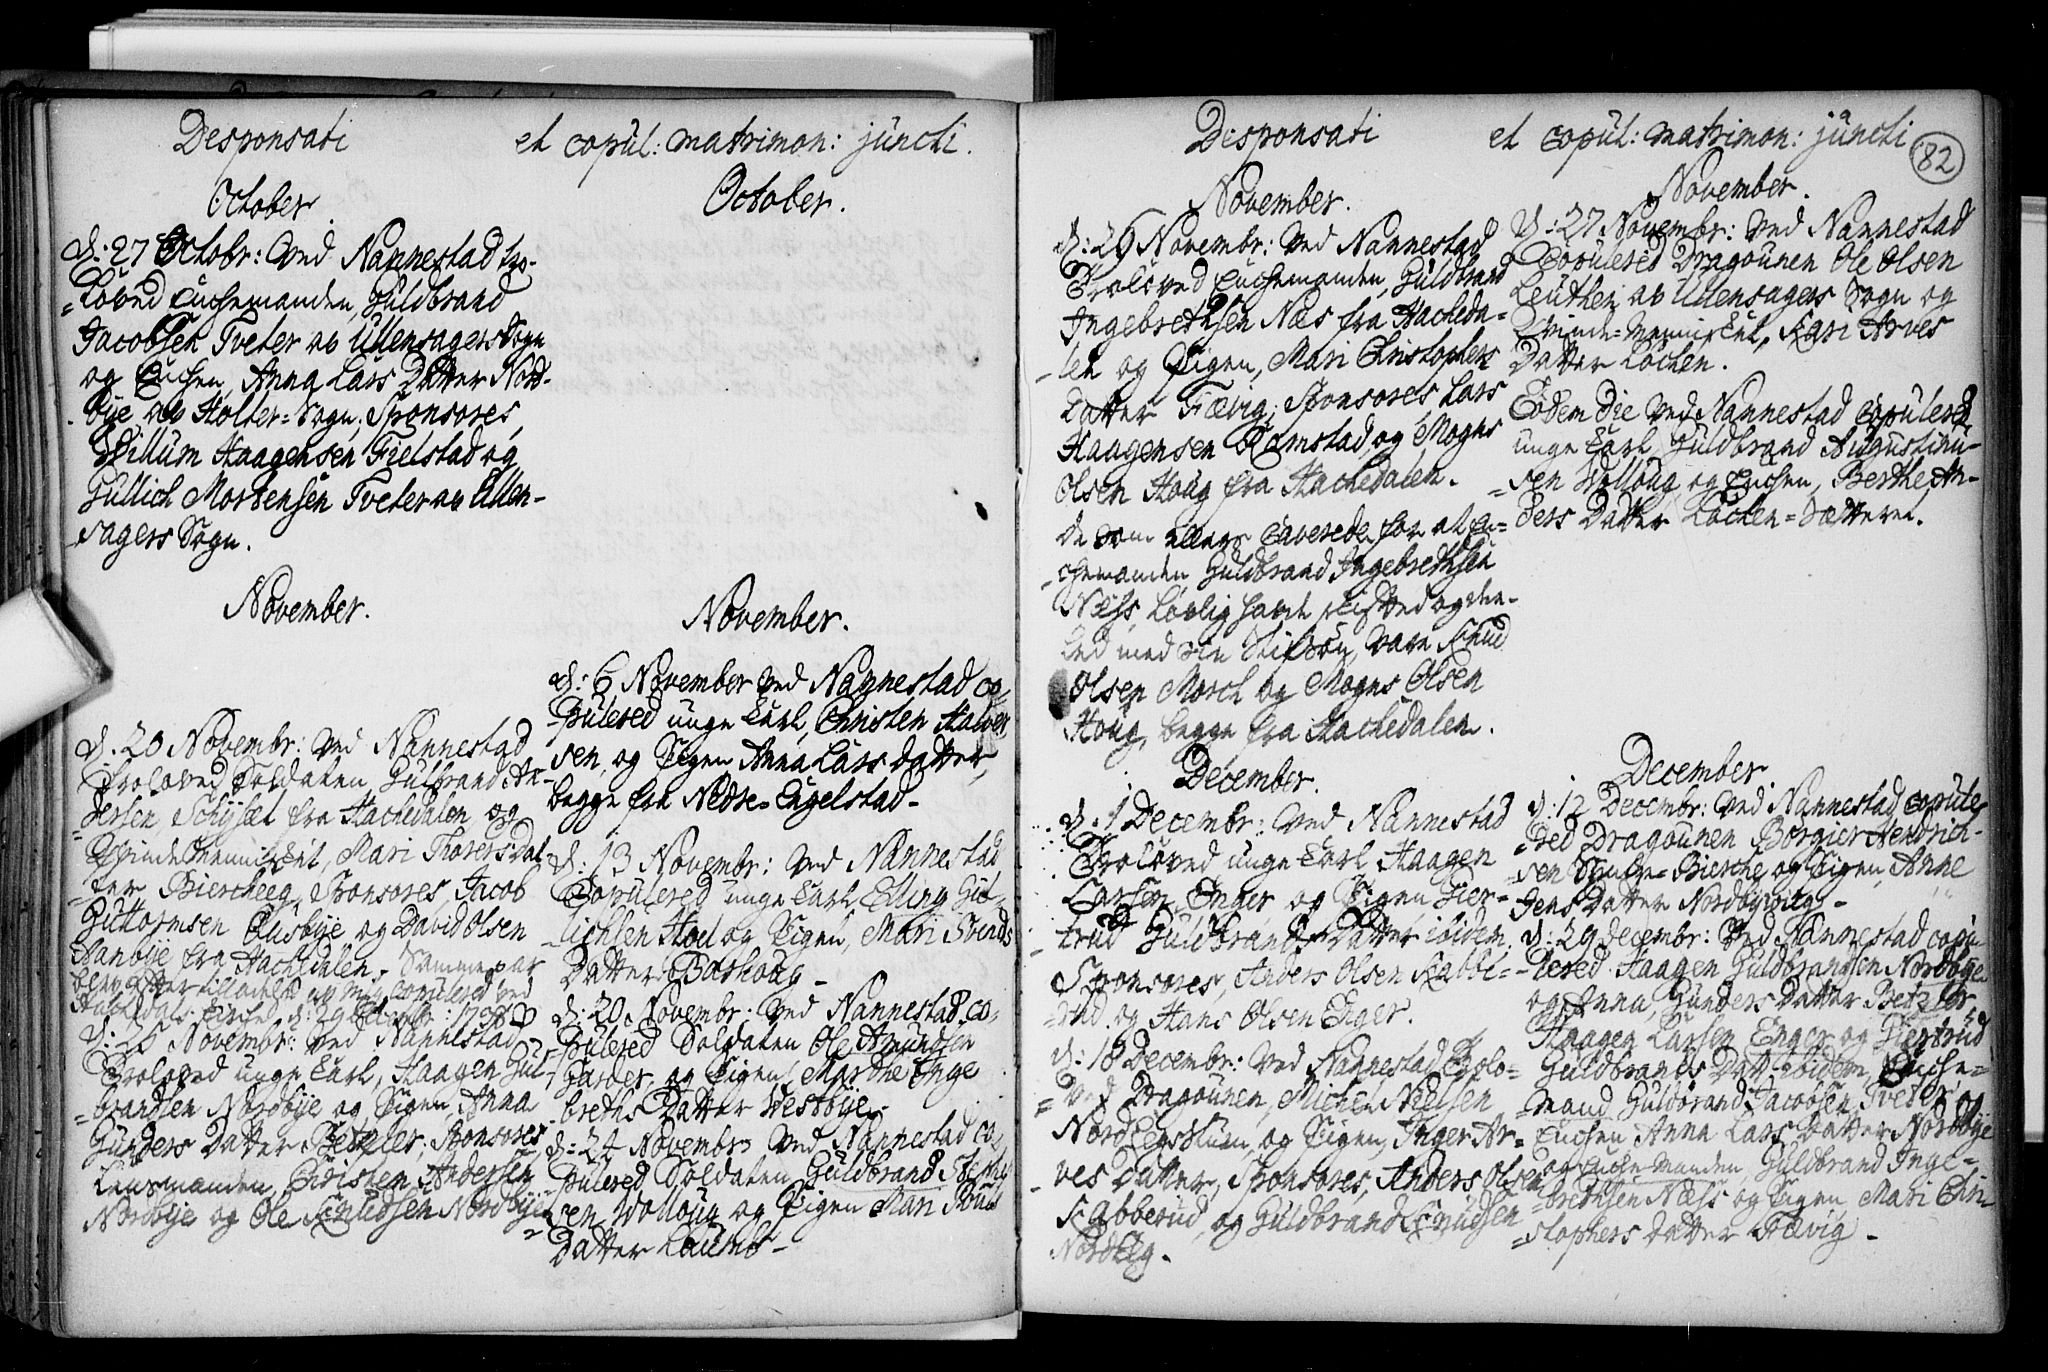 Desponsati
October.
d: 27 Octobr: ved Nannestad tro-
=loved Enchemanden, Guldbrand
Jacobsen Tveter av Ullensagers Sogn
og Enchen, Anna Lars Datter Nord-
bye av Holter=Sogn; Sponsores,
Willum Haagensen Fielstad og
Gullich Mortensen Tveter av Ullen-
sagers Sogn.
November.
d. 20 Novembr: ved Nannestad
Troloved Soldaten Gulbrand An-
=dersen, fra Hachedalen, og
Qvindemennisket, Mari Thoersdat
=ter Biercheeg, Sponsores, Jacob
Guttormsen Ousbye og David Olsen
fra Hachedalen. Samme par
blev efter tilladelse av mig copulered ved
Hachedals Kirche, d: 29
d: 26 Novembr: ved Nannestad
Troloved unge Karl, Haagen Gul-
=brandsen Nordbye og Pigen Anna
Gunders Datter Betzler, Sponsores,
Lensmanden, Christen Andersen
Nordbye og Ole Knudsen Nordbye
et copul: matrimon: juncti.
October.
November.
d: 6 November ved Nannestad co-
=pulered unge Karl, Christen Halvor
sen, og Pigen Anna Larsdatter,
begge fra Nedre=Engelstad-
d: 13 Novembr: ved Nannestad
Copulered unge Karl Elling Gul-
=lichsen Hoel og Pigen, Mari Svends
Datter Bashoug-
d: 20 Novembr: ved Nannestad co-
pulered Soldaten Ole Amundsen
Garder, og Pigen, Marthe Inge
breths Datter Westbye.
d: 24 Novembr ved Nannestad co-
pulered Soldaten Guldbrand
sen Wolloug og Pigen Mari
Datter Laumb-
Desponsati
November.
d: 26 Novembr: ved Nannestad
Troloved Enchemanden, Guldbrand
Ingebrethsen Næs fra Hacheda-
=len og Pigen, Mari Christophers
Datter Fævig; Sponsores Lars
Haagensen Ramstad, og Mogns
Olsen Houg fra Hachedalen.
De som ellers Caverede for at En-
=chemanden Guldbrand Ingebrethsen
Næss, lovlig havde skiftted og dee-
led med sin Stifsøn, vare Knud
Olsen Morch og Mogns Olsen
Houg, begge fra Hachedalen.
December.
d. 1 Decembr: ved Nannestad
Troloved unge Karl Haagen
Larsen Enger og Pigen Gier-
trud Guldbrands Datter ibidem,
Sponsores, Anders Olsen Kabbe-
=rud og Hans Olsen Enger.
d: 18 Decembr: ved Nannestad Trolo-
=ved Dragounen, Michel Nielsen
Nordlegsslum, og Pigen, Inger Ar-
ves Datter, Sponsores, Anders Olsen
Kabberud, og Guldbrand Knudsen
Nordleg.
et copul: matrimon: juncti
82
November.
d: 27 Novembr: ved Nannestad
Copulered Dragounen Ole Olsen
Leuthen av Ullensagers Sogn og
Qvinde=Mennisket, Kari Arves
Datter Løchen.
Eodem die ved Nannestad copulered
unge Karl Guldbrand Augustinu-
=sen Wolloug og Enchen, Berthe An-
ders Datter Løchen=Sætteret.
December.
d: 12 Decembr: ved Nannestad copule
=red Dragounen Borgier Hendrich-
=sen Bierche og Pigen Anne
Jens Datter
d: 29 decembr: ved Nannestad copu-
=lered Haagen Guldbrandsen Nordbye
og Anna, Gunders Datter Betzler,
Haagen Larsen Enger og Giertrud
Guldbrands Datt: ibidem, Enche=
mand Guldbrand Jacobsen Tveter og
Enchen Anna Lars Datter Nordbye
og Enche=Manden, Guldbrand Inge-
=brethsen Næss og Pigen, Mari Chri-
=stophers Datter Fævig-